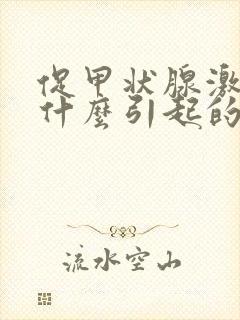 促甲状腺激
什麼引起的
流水空山